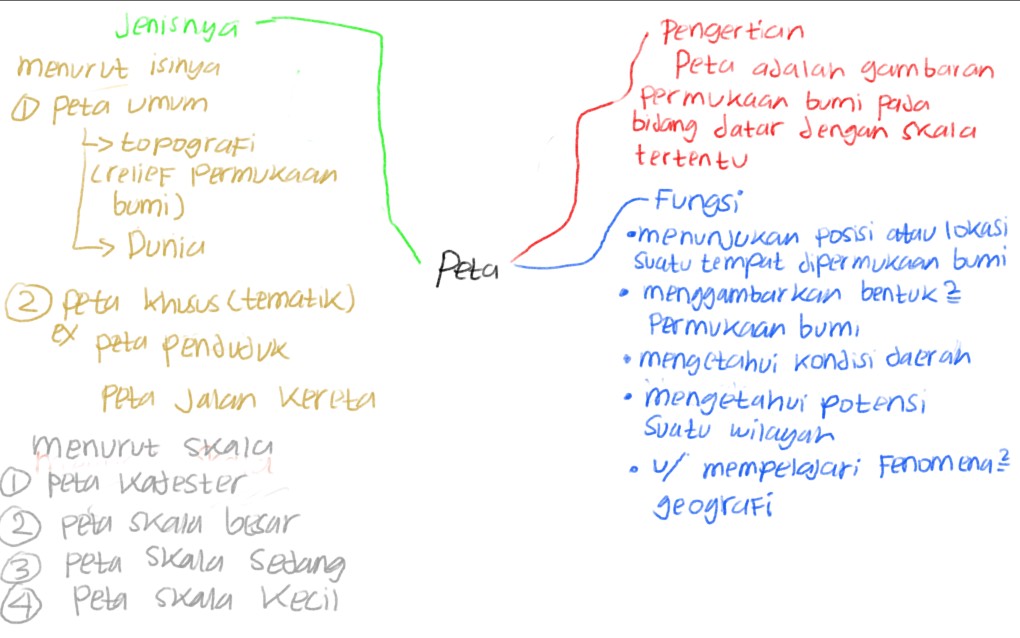 Jenisnya
menurut isinya
① peta umum
↳ topografi
(relief permukaan
bumi)
↳ Dunia
② peta khusus (tematik)
ex peta penduduk
peta jalan kereta
menurut skala
① peta kadester
② peta skala besar
③ peta skala sedang
④ peta skala kecil
Peta
Pengertian
Peta adalah gambaran
permukaan bumi pada
bidang datar dengan skala
tertentu
Fungsi
• menunjukan posisi atau lokasi
suatu tempat dipermukaan bumi
• menggambarkan bentuk²
permukaan bumi
• mengetahui kondisi daerah
• mengetahui potensi
suatu wilayah
• u/ mempelajari fenomena²
geografi